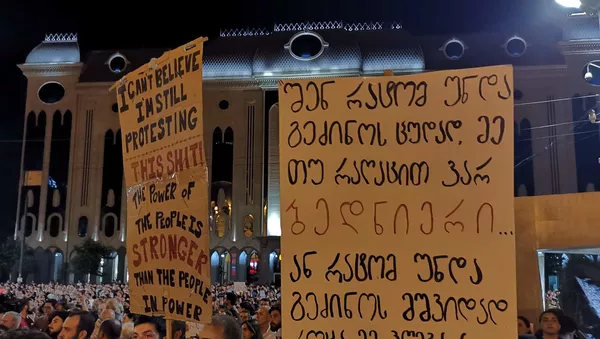 I CAN'T BELIEVE
I'M STILL
PROTESTING
THIS SHIT!
THE POWER OF
THE PEOPLE IS
STRONGER
THAN THE PEOPLE
IN POWER
შენ რატომ უნდა
გეძინოს ცუდად, მე
თუ რაღაცით ვარ
ბედნიერი...
ან რატომ უნდა
გეძინოს მშვიდად